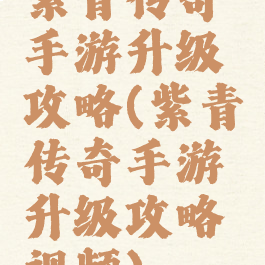 紫青传奇
手游升级
攻略(紫青
传奇手游
升级攻略
视频)